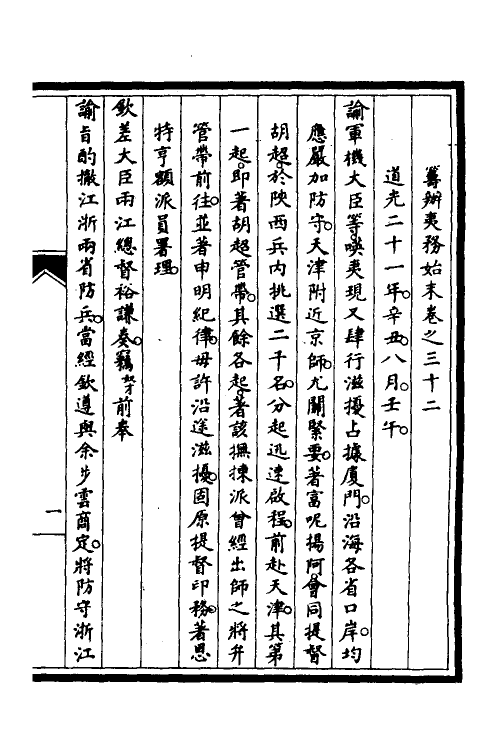 籌辦夷務始末卷之三十二
道光二十一年辛丑。八月。壬午。
諭軍機大臣等。𠸄夷現又肆行滋擾。占據廈門。沿海各省口岸。均
應嚴加防守。天津附近京師。尤關緊要。著富呢揚阿。會同提督
胡超。於陝西兵內挑選二千名。分起迅速啟程。前赴天津。其第
一起。即著胡超管帶。其餘各起。著該撫揀派曾經出師之將弁
管帶前往。並著申明紀律。毋許沿途滋擾。固原提督印務。著恩
特亨額派員署理。
欽差大臣兩江總督裕謙奏。竊奴才前奉
諭旨酌撤江浙兩省防兵。當經欽遵與余步雲商定。將防守浙江
一